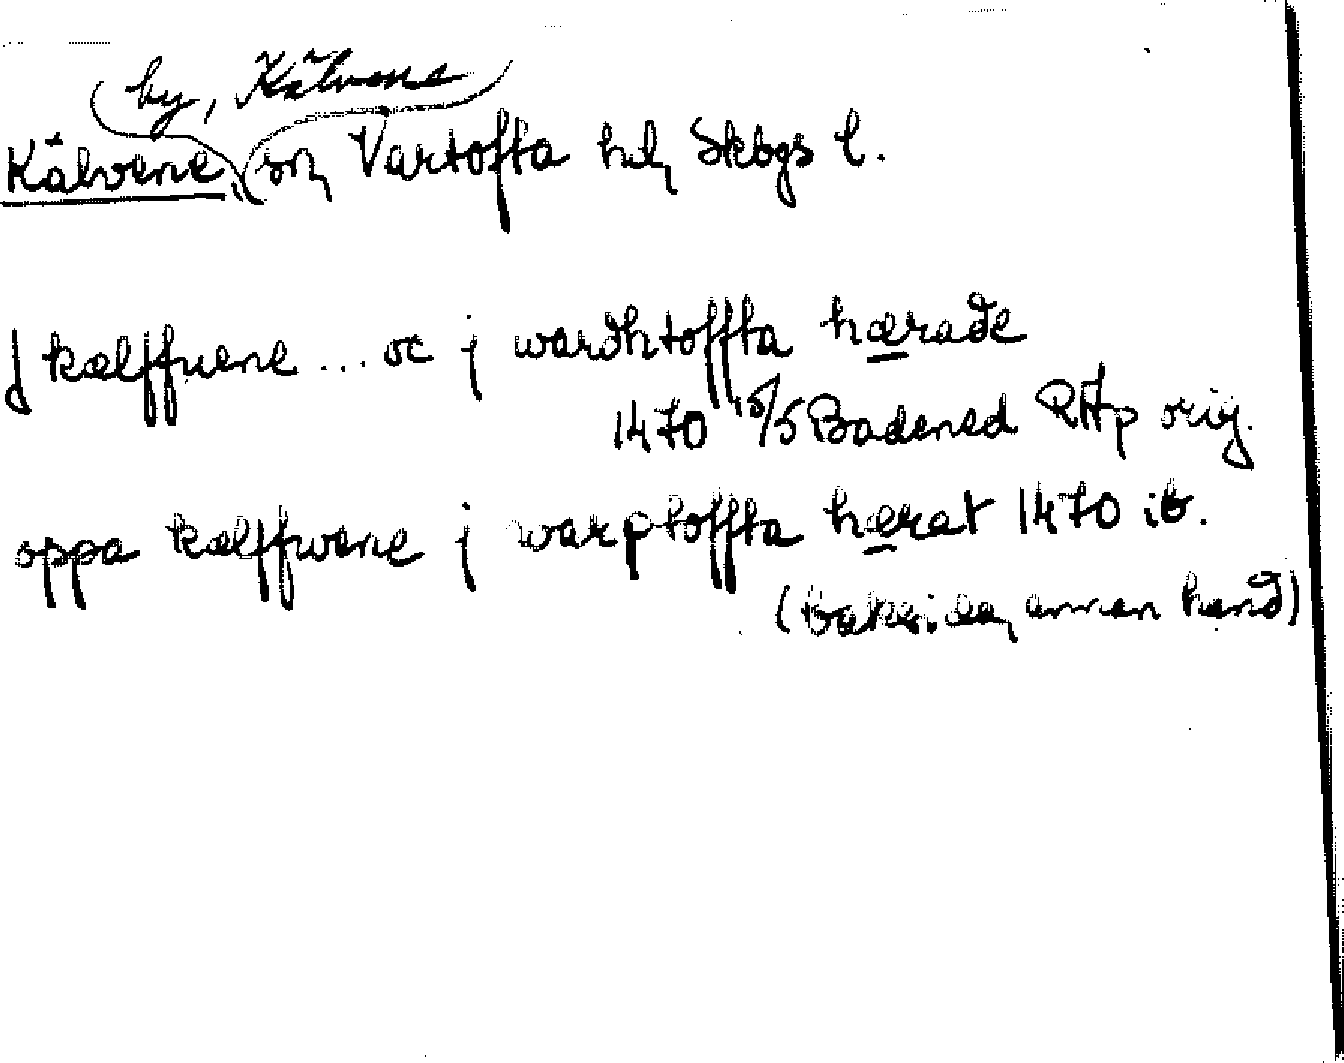 by, Kälvene
Kälvene, sn, Vartofta hd, Skbgs l.
J kælffuene ... oc j wardhtoffta hærade
1470 15/5 Badened RAp orig.
oppa kælffwene j warptoffta hærat 1470 ib.
(baksidan, annan hand)